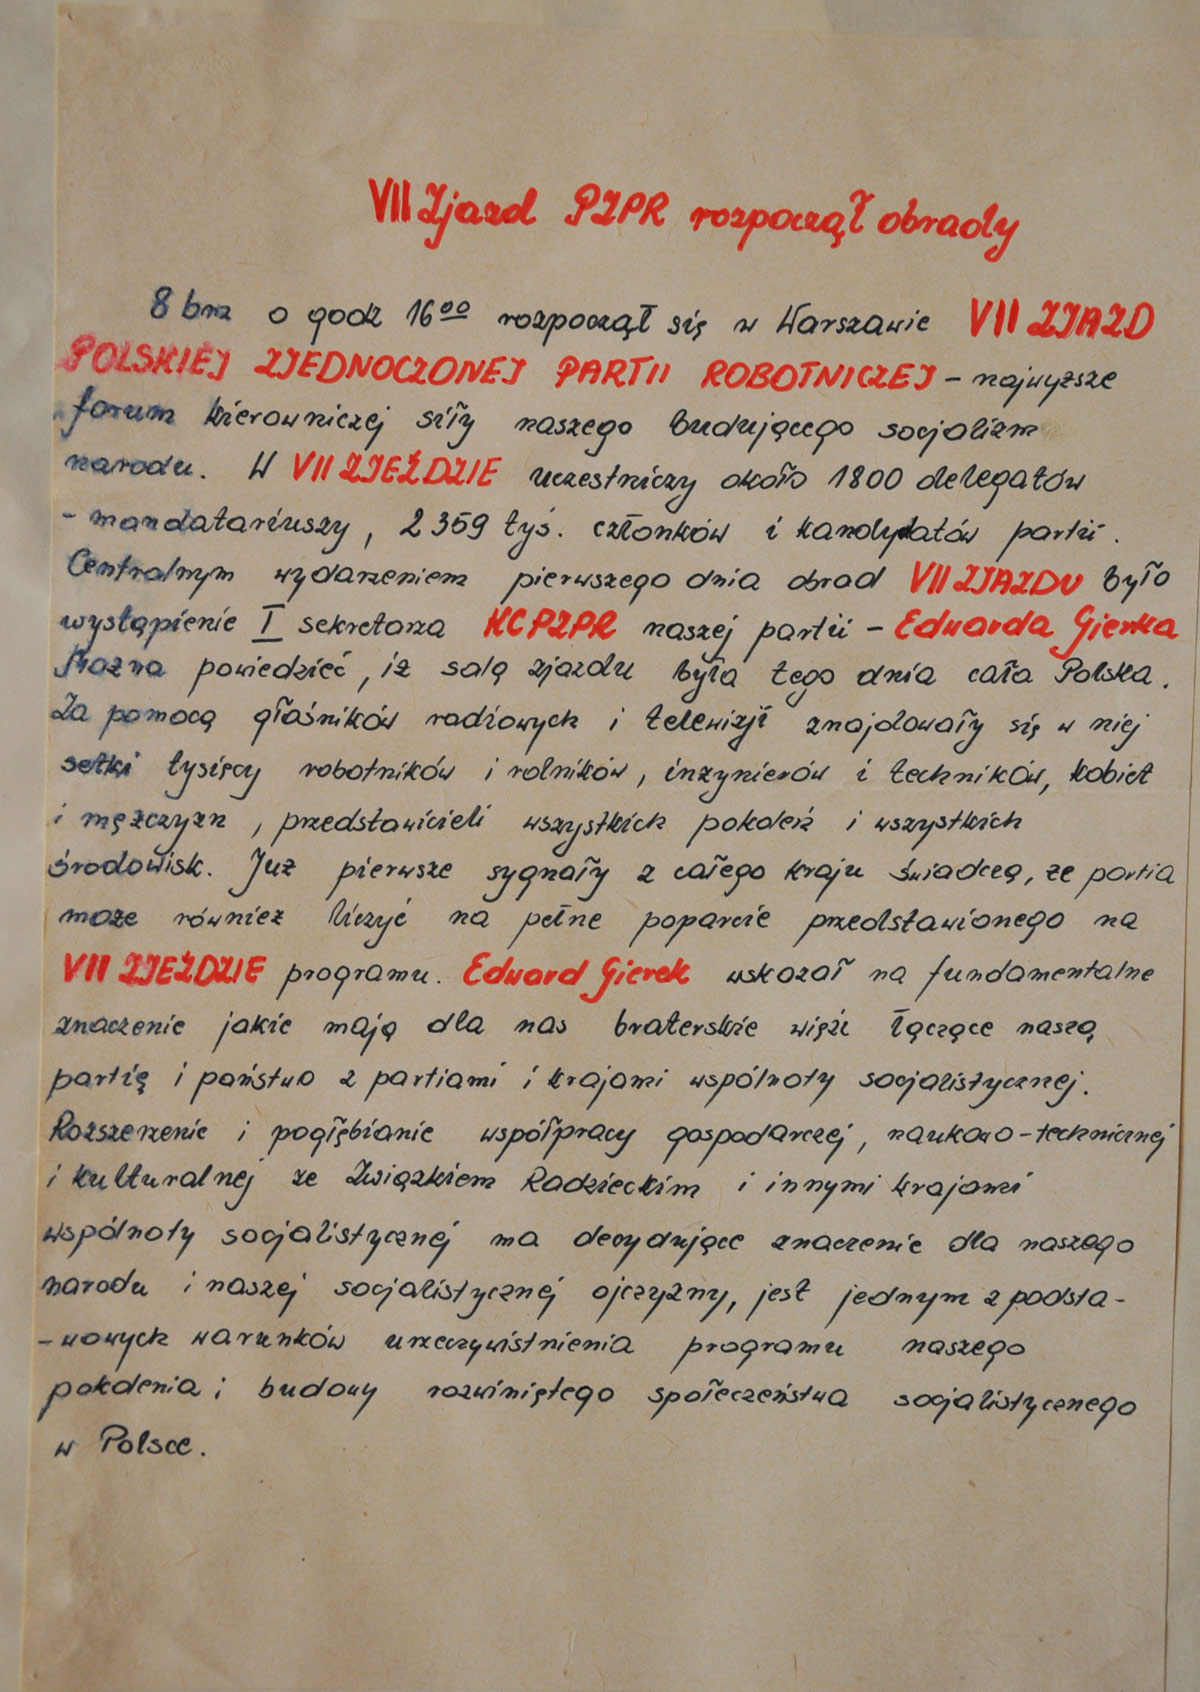 VII Zjazd PZPR rozpoczął obrady
8 bm o godz 16⁰⁰ rozpoczął się w Warszawie VII ZJAZD
POLSKIEJ ZJEDNOCZONEJ PARTII ROBOTNICZEJ - najwyższe
forum kierowniczej siły naszego budującego socjalizm
narodu. W VII ZJEŹDZIE uczestniczy około 1800 delegatów
- mandatariuszy, 2 359 tyś. członków i kandydatów partii.
Centralnym wydarzeniem pierwszego dnia obrad VII ZJAZDU było
wystąpienie I sekretarza KC PZPR naszej partii - Edwarda Gierka
Można powiedzieć, iż salą zjazdu była tego dnia cała Polska.
Za pomocą głośników radiowych i telewizji znajdowały się w niej
setki tysięcy robotników i rolników, inżynierów i techników, kobiet
i mężczyzn, przedstawicieli wszystkich pokoleń i wszystkich
środowisk. Już pierwsze sygnały z całego kraju świadczą, że partia
może również liczyć na pełne poparcie przedstawionego na
VII ZJEŹDZIE programu. Edward Gierek wskazał na fundamentalne
znaczenie jakie mają dla nas braterskie więzi łączące naszą
partię i państwo z partiami i krajami wspólnoty socjalistycznej.
Rozszerzenie i pogłębianie współpracy gospodarczej, naukowo-technicznej
i kulturalnej ze Związkiem Radzieckim i innymi krajami
wspólnoty socjalistycznej ma decydujące znaczenie dla naszego
narodu i naszej socjalistycznej ojczyzny, jest jednym z podsta-
-wowych warunków urzeczywistnienia programu naszego
pokolenia i budowy rozwiniętego społeczeństwa socjalistycznego
w Polsce.